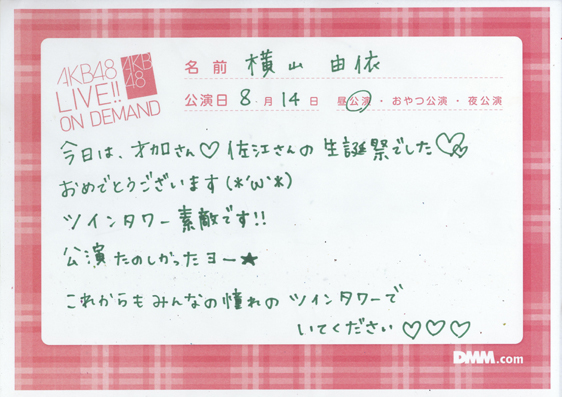 AKB48
LIVE!!
ON DEMAND
AKB
48
名前 横山 由依
公演日 8月14日 昼公演・おやつ公演・夜公演
今日は、才加さん♡佐江さんの生誕祭でした♡♡
おめでとうございます(*'ω'*)
ツインタワー素敵です!!
公演たのしかったヨー★
これからもみんなの憧れのツインタワーで
いてください♡♡♡
DMM.com